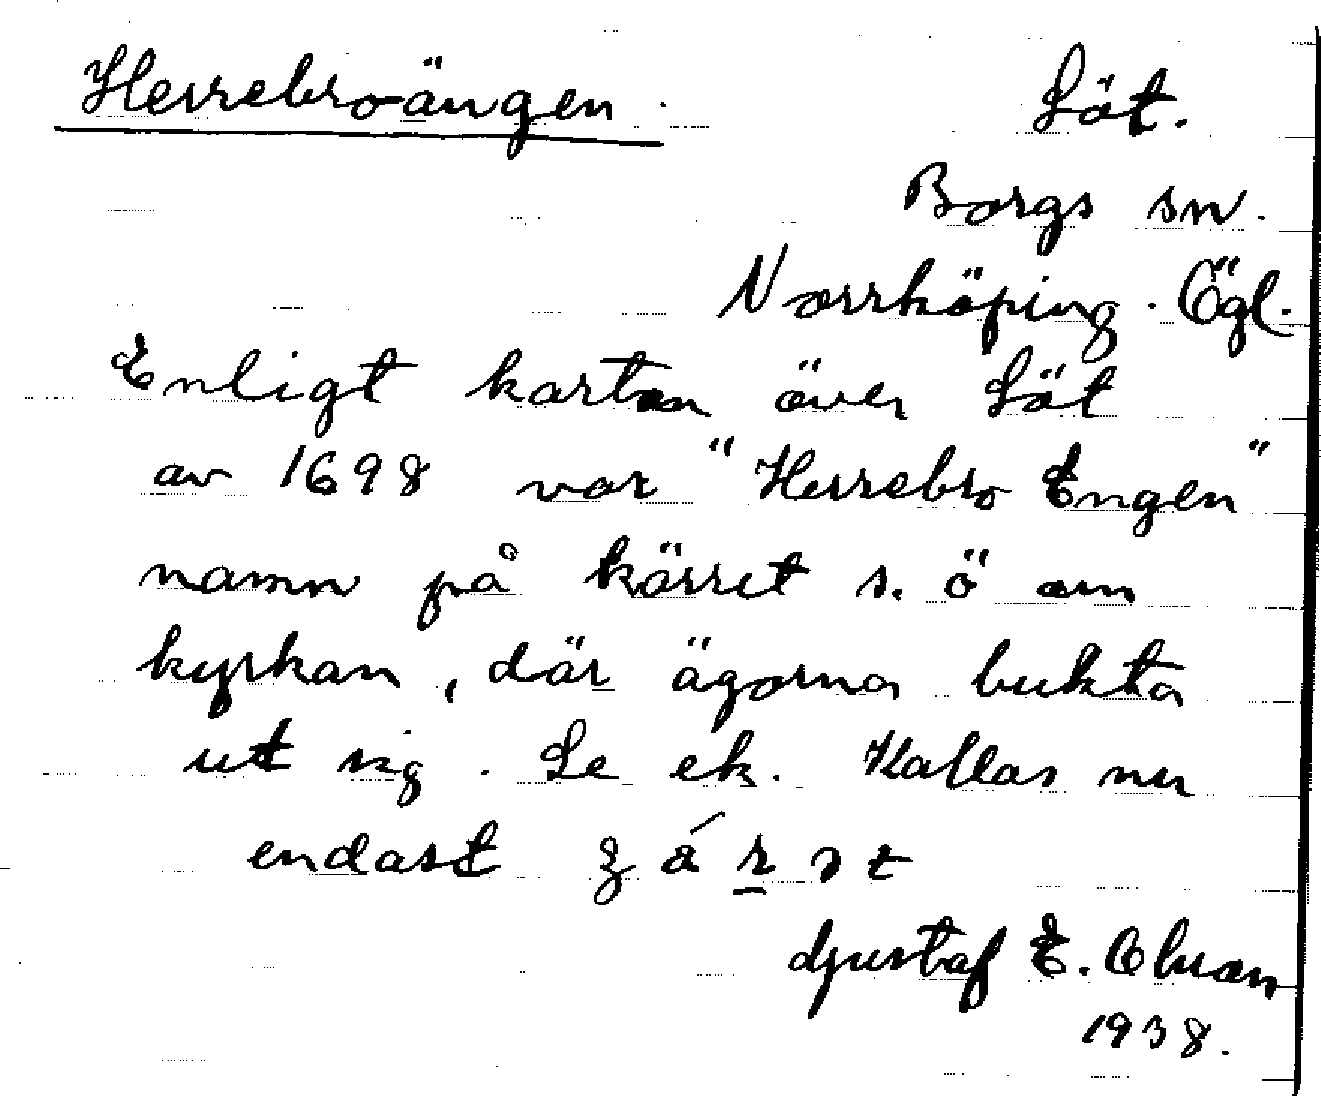 Herrebro-ängen.
Löt.
Borgs sn.
Norrköping. Ögl.
Enligt kartan över Löt
av 1698 var "Herrebro Engen"
namn på kärret s. ö om
kyrkan, där ägorna bukta
ut sig. Se ek. Kallas nu
endast
Gustaf E. Olsson
1938.